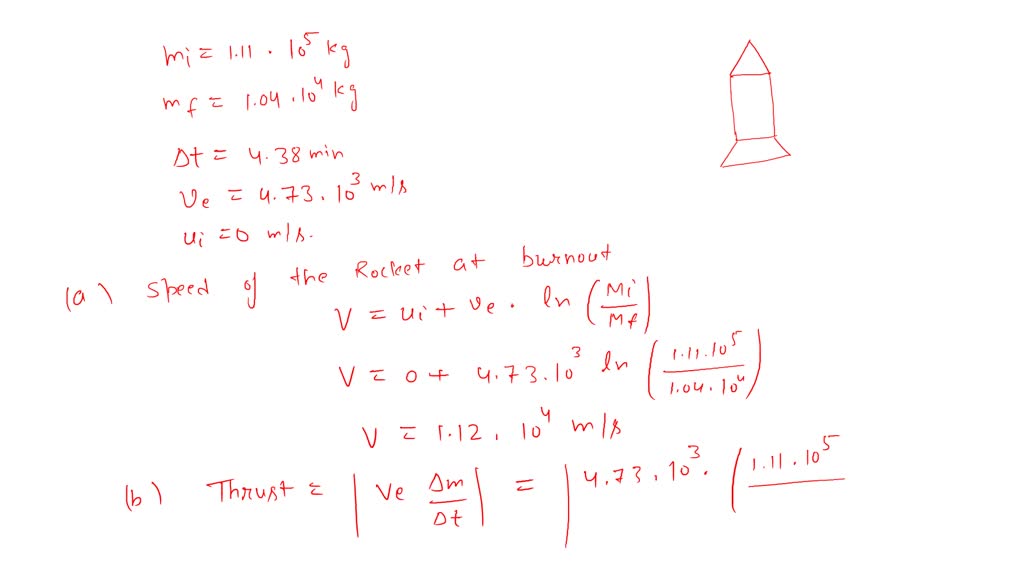 mi = 1.11 · 10⁵ kg
mf = 1.04 · 10⁴ kg
Δt = 4.38 min
ve = 4.73 · 10³ m/s
ui = 0 m/s.
(a) Speed of the Rocket at burnout
V = ui + ve · ln (Mi/Mf)
V = 0 + 4.73 · 10³ ln (1.11 · 10⁵/1.04 · 10⁴)
V = 1.12 · 10⁴ m/s
(b) Thrust = |Ve Δm/Δt| = |4.73 · 10³ · (1.11 · 10⁵